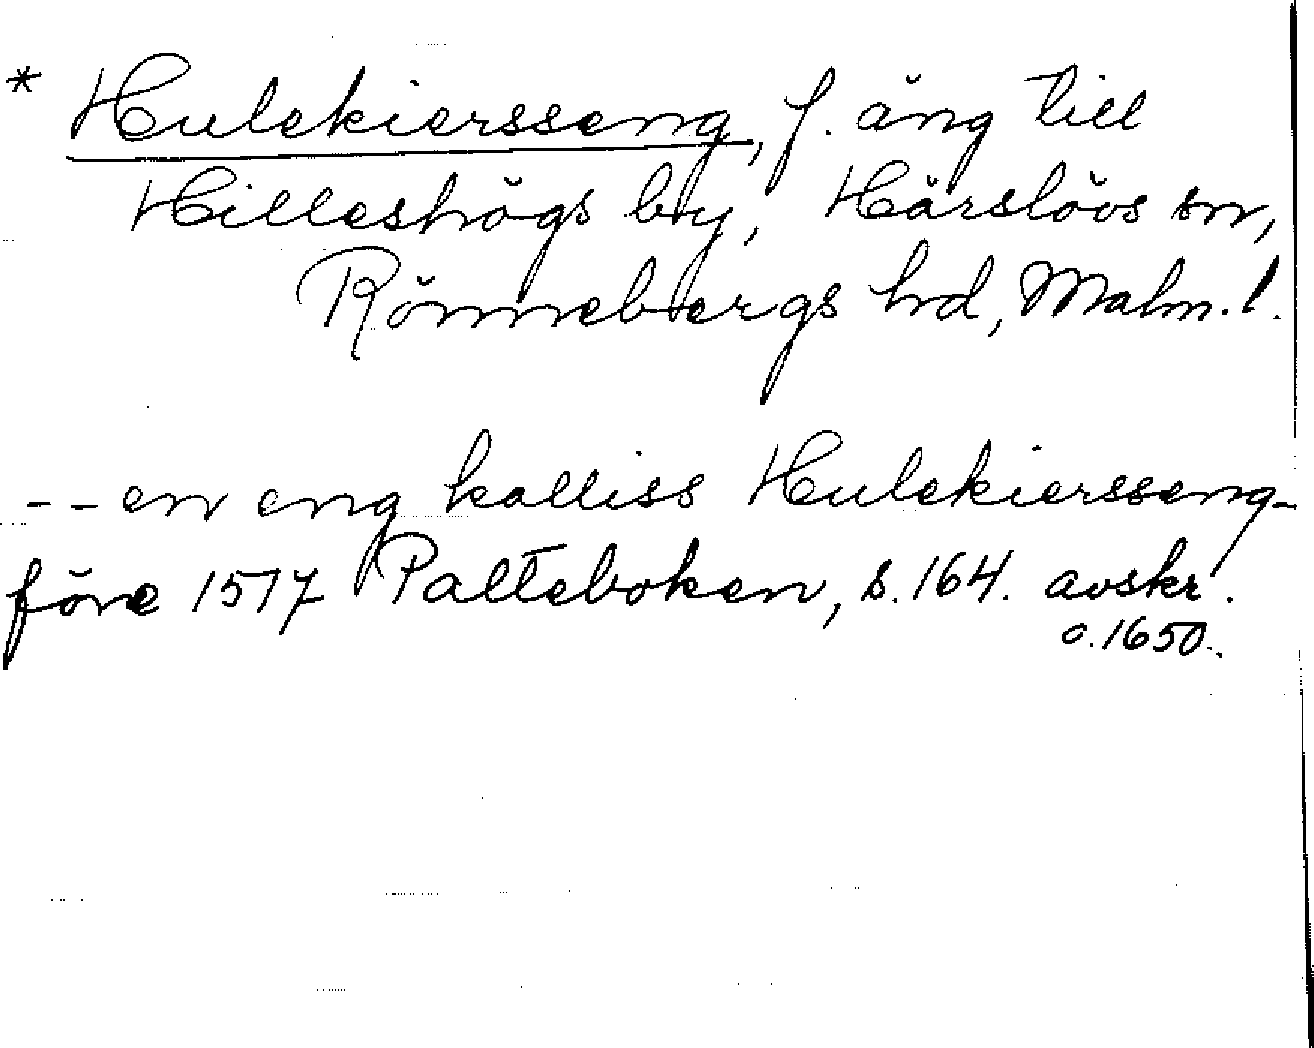 * Hulekiersseng, f. äng till
Hilleshögs by, Härslövs sn,
Rönnebergs hd, Malm. l.
-- en eng kalliss Hulekiersseng -
före 1517 Palteboken, s. 164. avskr.
o. 1650.